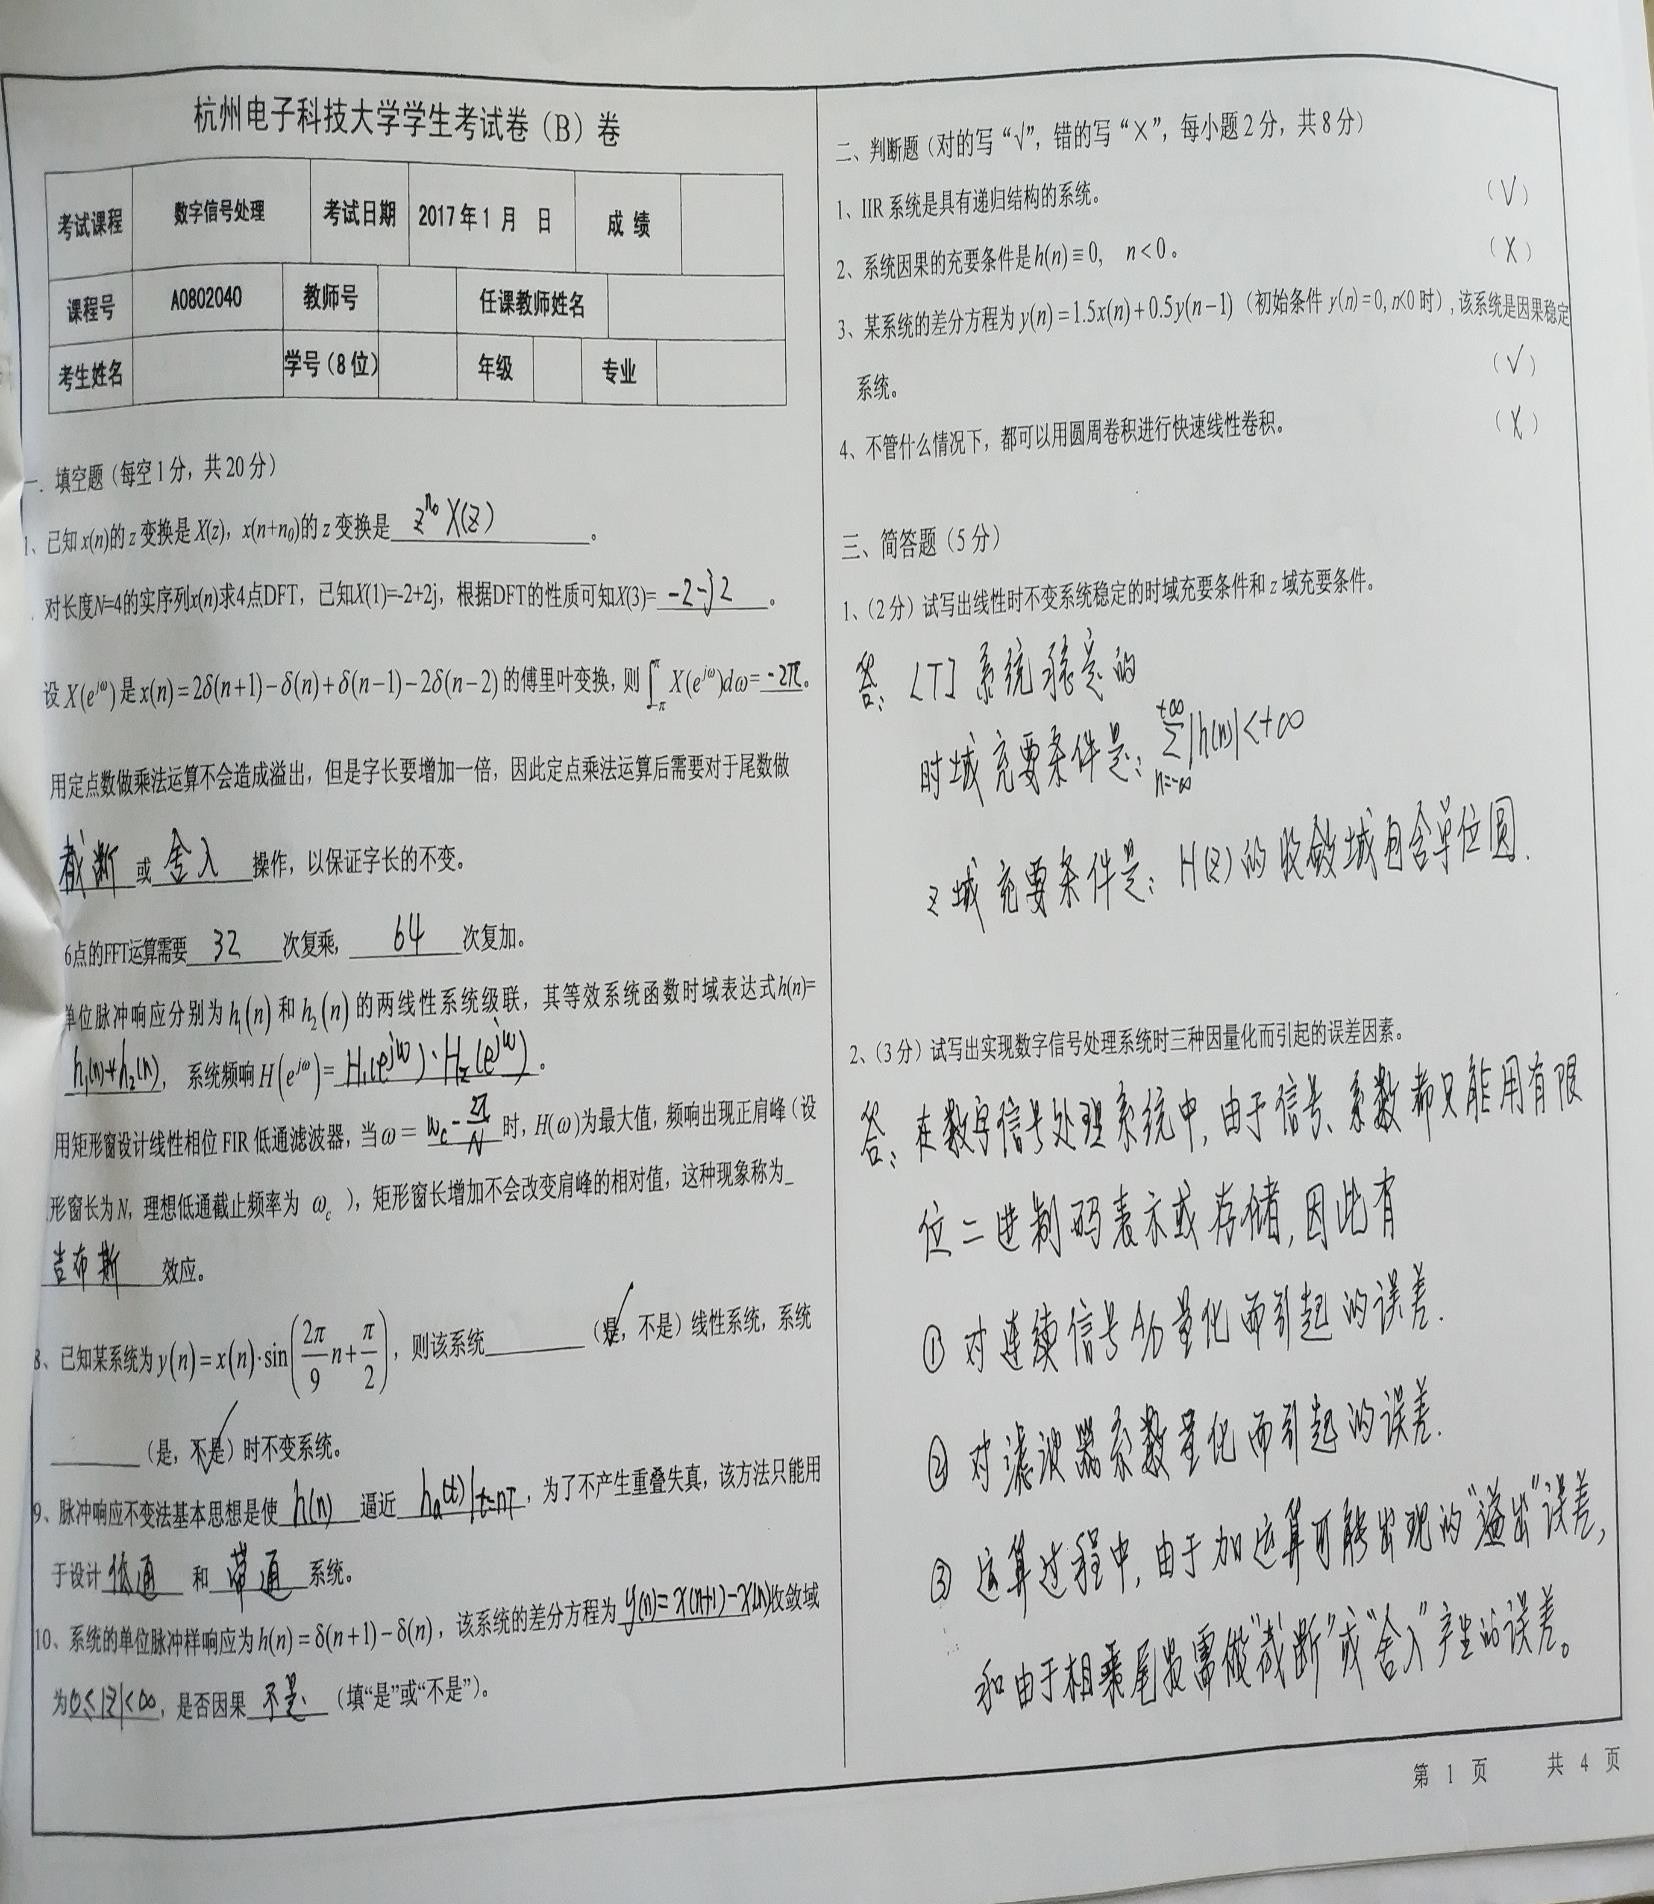 杭州电子科技大学学生考试卷（B）卷
考试课程 数字信号处理 考试日期 2017年1 月 日 成 绩
课程号 A0802040 教师号 任课教师姓名
考生姓名 学号（8位） 年级 专业
一. 填空题（每空1分，共20分）
1、已知x(n)的z变换是X(z)，x(n+n₀)的z变换是 z^{n₀} X(z) 。
对长度N=4的实序列x(n)求4点DFT，已知X(1)=-2+2j，根据DFT的性质可知X(3)= -2-j2 。
设X(e^{jω})是x(n)=2δ(n+1)−δ(n)+δ(n−1)−2δ(n−2)的傅里叶变换，则∫_{-π}^{π} X(e^{jω})dω= -2π 。
用定点数做乘法运算不会造成溢出，但是字长要增加一倍，因此定点乘法运算后需要对于尾数做
截断 或 舍入 操作，以保证字长的不变。
6点的FFT运算需要 32 次复乘， 64 次复加。
单位脉冲响应分别为h₁(n)和h₂(n)的两线性系统级联，其等效系统函数时域表达式h(n)=
h₁(n)*h₂(n)， 系统频响H(e^{jω})= H₁(e^{jω})·H₂(e^{jω}) 。
用矩形窗设计线性相位FIR低通滤波器，当ω= ω_c - 2π/N 时，H(ω)为最大值，频响出现正肩峰（设
形窗长为N，理想低通截止频率为 ω_c ），矩形窗长增加不会改变肩峰的相对值，这种现象称为
吉布斯 效应。
8、已知某系统为y(n)=x(n)·sin(2π/9 n+π/2)，则该系统 （是✓，不是）线性系统，系统
（是，不是✓）时不变系统。
9、脉冲响应不变法基本思想是使 h(n) 逼近 h_a(t)|t=nT ，为了不产生重叠失真，该方法只能用
于设计 低通 和 带通 系统。
10、系统的单位脉冲样响应为h(n)=δ(n+1)−δ(n)，该系统的差分方程为 y(n)=x(n+1)-x(n) 收敛域
为 0≤|z|<∞ ，是否因果 不是 （填“是”或“不是”）。
二、判断题（对的写“√”，错的写“×”，每小题2分，共8分）
1、IIR系统是具有递归结构的系统。 （√）
2、系统因果的充要条件是h(n)≡0, n<0。 （×）
3、某系统的差分方程为y(n)=1.5x(n)+0.5y(n−1)（初始条件y(n)=0, n<0时），该系统是因果稳定
系统。 （√）
4、不管什么情况下，都可以用圆周卷积进行快速线性卷积。 （×）
三、简答题（5分）
1、（2分）试写出线性时不变系统稳定的时域充要条件和z域充要条件。
答：LTI 系统稳定的
时域充要条件是：∑_{n=-∞}^{+∞}|h(n)|<+∞
z域充要条件是：H(z)的收敛域包含单位圆.
2、（3分）试写出实现数字信号处理系统时三种因量化而引起的误差因素。
答：在数字信号处理系统中，由于信号、系数都只能用有限
位二进制码表示或存储，因此有
① 对连续信号A/D量化而引起的误差.
② 对滤波器系数量化而引起的误差.
③ 运算过程中，由于加运算可能出现的“溢出”误差，
和由于相乘尾数需做“截断”或“舍入”产生的误差。
第 1 页 共 4 页